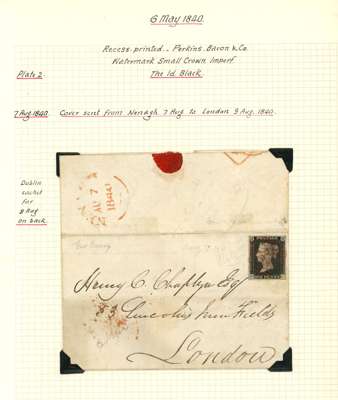 6 May 1840.
Recess-printed.. Perkins. Bacon & Co.
Watermark Small Crown. Imperf.
Plate 2. The 1d. Black.
7 Aug. 1840. Cover sent from Nenagh 7 Aug to London 9 Aug. 1840.
Dublin
cachet
for
8 Aug
on back.
AU 7
1840
POSTAGE
ONE PENNY
Henry C. Chaplyn Esqr
Lincoln's Inn Fields
London